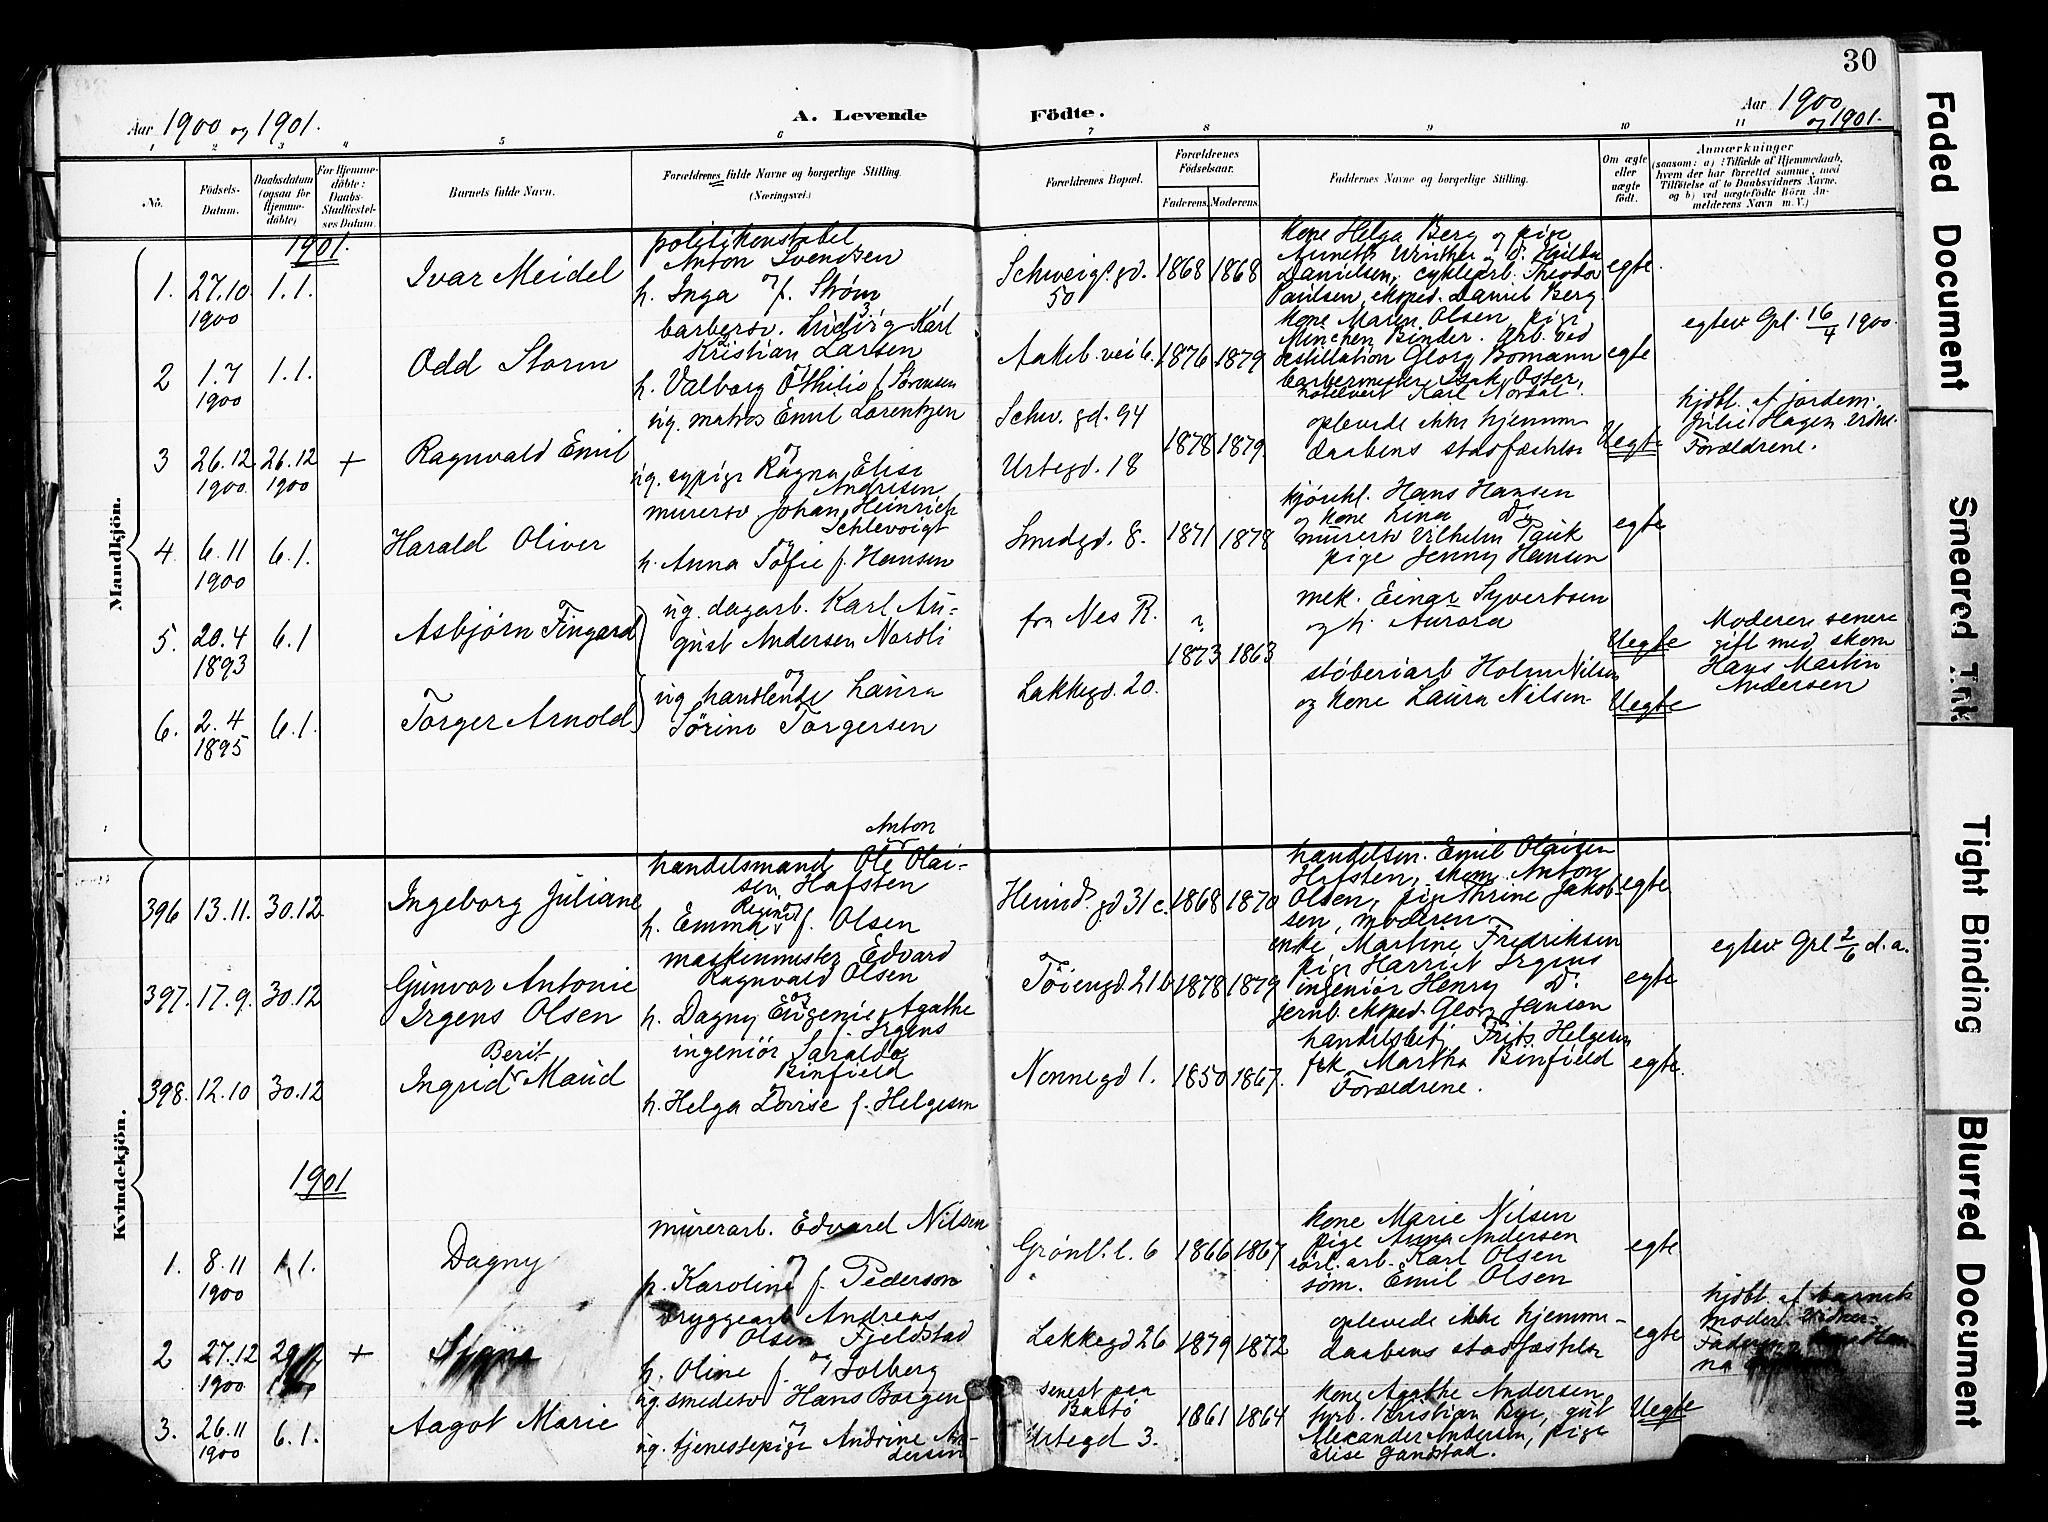 30
Aar 1900 og 1901.
A. Levende Födte.
Aar 1900 og 1901.
1 2 3 4 5 6 7 8 9 10 11
No.
Födsels-Datum.
Daabsdatum (ogsaa for Hjemme-döbte)
For Hjemme-döbte: Daabs-Stadfæstel-ses Datum.
Barnets fulde Navn.
Forældrenes fulde Navne og borgerlige Stilling. (Næringsvei.)
Forældrenes Bopæl.
Forældrenes Födselsaar.
Faderens. Moderens.
Faddernes Navne og borgerlige Stilling.
Om ægte eller uægte födt.
Anmærkninger
(saasom: a) i Tilfælde af Hjemmedaab, hvem der har forrettet samme, med Tilföielse af to Daabsvidners Navne, og b) ved uægtefödte Börn An-melderens Navn m. V.)
Mandkjön.
1901.
1. 27.10 1900 1.1. Ivar Meidel
politikonstabel
Anton Svendsen
og
h. Inga f. Strøm
Schweig. gd. 50
1868 1868
kone Helga Berg og pige
Danielsen, cyklearb. Theodor
Paulsen, eksped. Daniel Berg
egte.
2 1.7 1900 1.1. Odd Storm
barbersv. Ludvig Karl
Kristian Larsen
og
h. Valborg Othilie f. Sörensen
Aakeb. vei 6.
1876 1879
kone Maren Olsen, pige
München Binder. arb. ved
destillation Georg Bomann
barbermester Isak Oster,
hotelvert Karl Nordal.
egte
egtev. Gpl. 16/4 1900.
3 26.12 1900 26.12 1900 + Ragnvald Emil
ug. matros Emil Lorentzen
og
ug. sypige Ragna Elise
Andresen
Schw. gd. 94
Urtegd. 18
1878 1879.
oplevede ikke hjemme
daabens stadfæstelse
Uegte
hjdbt. af jordem.
Julie Hagen
Forældrene.
4 6.11 1900 6.1. Harald Oliver
murersv Johan Heinrich
Schlevoigt
og
h. Anna Sofie f. Hansen
Smedgd. 8.
1871 1878
kjörekl. Hans Hansen
og kone Lina
murersv Vilhelm Pauk
pige Jenny Hansen
egte
5. 20.4 1893 6.1 Asbjörn Fingard
ug. dagarb. Karl Au-
gust Andersen Nordli
og
fra Nes R.
1873 1863
mek. Einar Syvertsen
og h. Aurora
Uegte
Moderen senere
gift med skom
Hans Martin
Andersen
6. 2.4 1895 6.1. Torger Arnold
ug handlende Laura
Sörine Torgersen
Lakkegd. 20.
støberiarb Holm Nilsen
og kone Laura Nilsen
Uegte
Kvindekjön.
396 13.11. 30.12. Ingeborg Juliane
Anton
handelsmand Ole Olai-
sen Hafsten
og
Regine
h. Emma f. Olsen
Heimd. gd 31 c.
1868 1870
handelsm. Emil Olaisen
Hafsten, skom. Anton
Olsen, pige Thrine Jakob-
sen, moderen
egte
397. 17.9. 30.12 Gunvor Antonie
Irgens Olsen
maskinmester Edvard
Ragnvald Olsen
og
h. Dagny Eugenie Agathe
f. Irgens
Töiengd 21 b
1878 1879
enke Martine Fredriksen
pige Harriet Irgens
ingeniör Henry Do.
jernb. eksped. Georg Janson
egte
egtev Gpl 2/6 d. a.
398. 12.10 30.12 Berit
Ingrid Maud
ingeniör
Binfield
h. Helga Lovise f. Helgesen
Nonnegd 1.
1850 1867.
handelsbetj Frits Helgesen
frk Martha Binfield
Forældrene.
egte.
1901
1. 8.11 1900 1.1. Dagny
murerarb. Edvard Nilsen
og
h. Karoline f. Pederson
Grönl. l. 6
1866 1867
kone Marie Nilsen
pige Anna Andersen
arb. Karl Olsen
söm. Emil Olsen
egte
2 27.12 1900 + Signe
bryggearb Andreas
Olsen Fjeldstad
og
h. Oline f. Solberg
Lakkegd 26
1879 1872
oplevede ikke hjemme-
daabens stadfæstelse
egte
hjdbt. af barnets
moder. Vidner:
Faderen
3. 26.11 1900 6.1. Aagot Marie
ug. smedesv Hans Borgen
og
ug. tjenestepige Andrine An-
dersen
senest paa
Bastö
Urtegd 3.
1861 1864
kone Agathe Andersen
fyrb. Kristian Bye, gut
Alexander Andersen, pige
Elise Gandstad.
Uegte
Faded Document
Smeared Ink
Tight Binding
Blurred Document